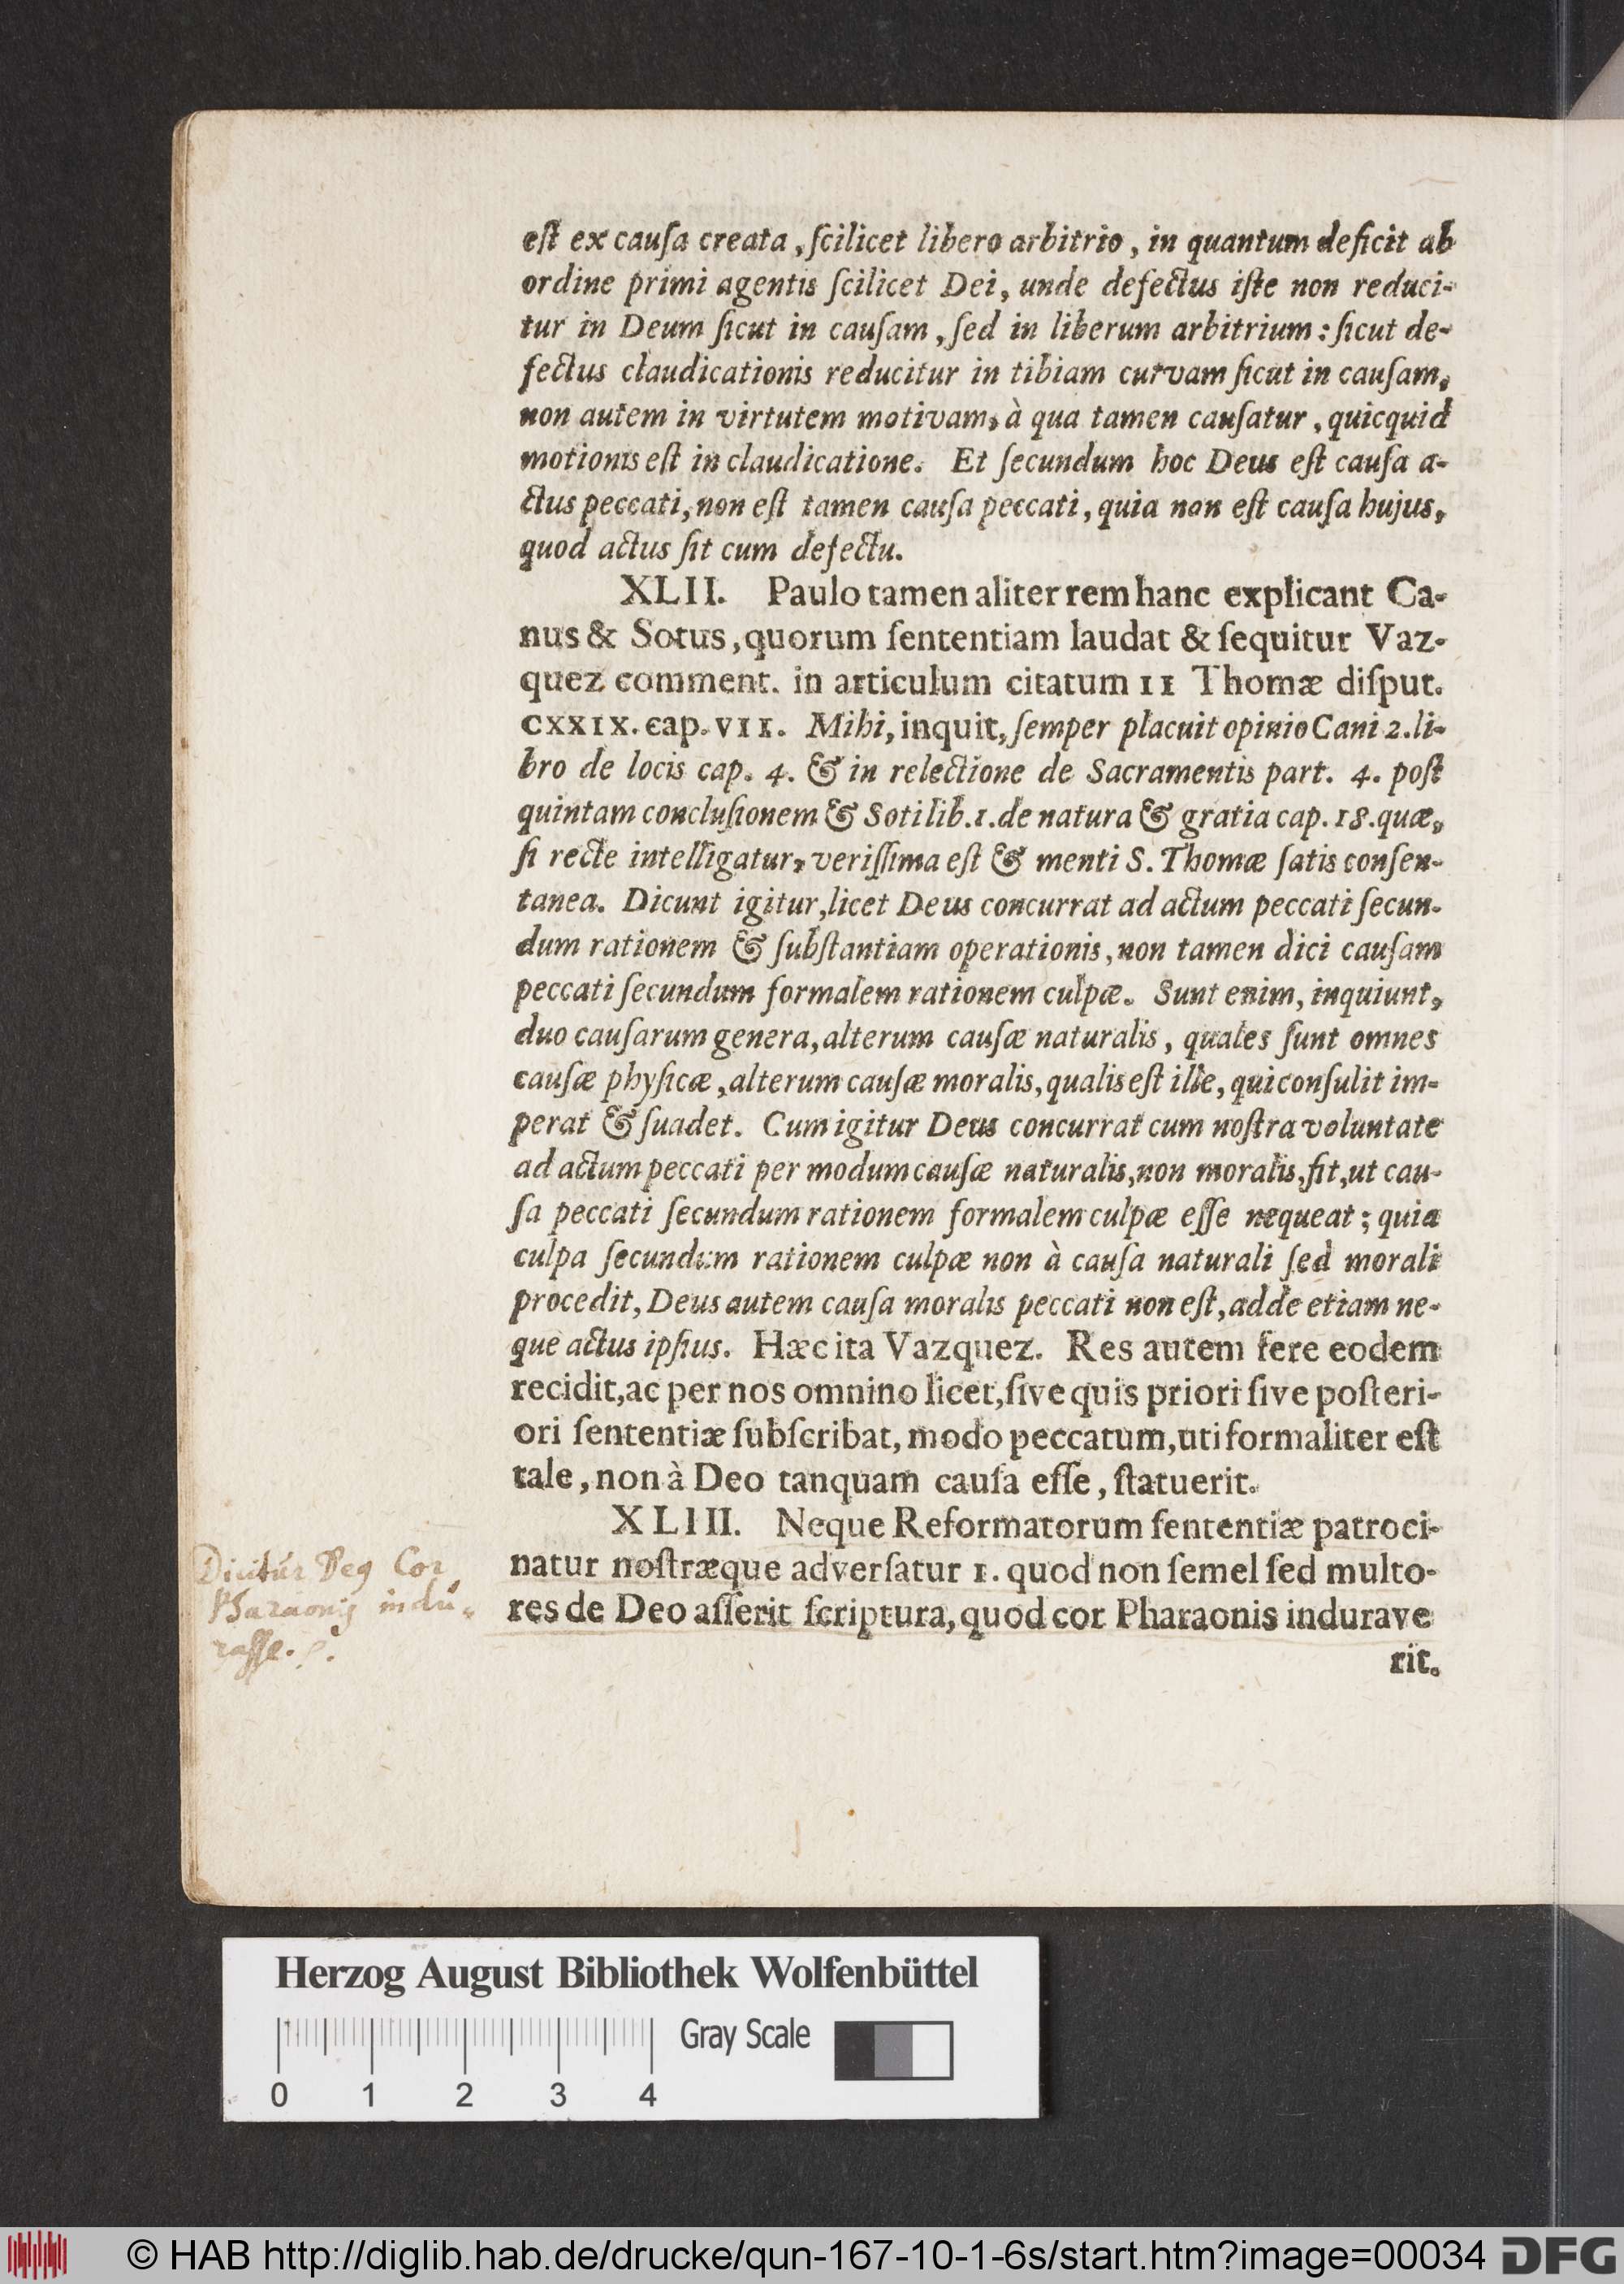 eſt ex cauſa creata, ſcilicet libero arbitrio, in quantum deficit ab
ordine primi agentis ſcilicet Dei, unde defectus iſte non reduci-
tur in Deum ſicut in cauſam, ſed in liberum arbitrium: ſicut de-
fectus claudicationis reducitur in tibiam curvam ſicut in cauſam,
non autem in virtutem motivam, à qua tamen cauſatur, quicquid
motionis eſt in claudicatione. Et ſecundum hoc Deus eſt cauſa a-
ctus peccati, non eſt tamen cauſa peccati, quia non eſt cauſa hujus,
quod actus ſit cum defectu.
XLII. Paulo tamen aliter rem hanc explicant Ca-
nus & Sotus, quorum ſententiam laudat & ſequitur Vaz-
quez comment. in articulum citatum II Thomæ diſput.
CXXIX. cap. VII. Mihi, inquit, ſemper placuit opinio Cani 2. li-
bro de locis cap. 4. & in relectione de Sacramentis part. 4. poſt
quintam concluſionem & Soti lib. 1. de natura & gratia cap. 18. quæ,
ſi recte intelligatur, veriſſima eſt & menti S. Thomæ ſatis conſen-
tanea. Dicunt igitur, licet Deus concurrat ad actum peccati ſecun-
dum rationem & ſubſtantiam operationis, non tamen dici cauſam
peccati ſecundum formalem rationem culpæ. Sunt enim, inquiunt,
duo cauſarum genera, alterum cauſæ naturalis, quales ſunt omnes
cauſæ phyſicæ, alterum cauſæ moralis, qualis eſt ille, qui conſulit im-
perat & ſuadet. Cum igitur Deus concurrat cum noſtra voluntate
ad actum peccati per modum cauſæ naturalis, non moralis, fit, ut cau-
ſa peccati ſecundum rationem formalem culpæ eſſe nequeat; quia
culpa ſecundum rationem culpæ non à cauſa naturali ſed morali
procedit, Deus autem cauſa moralis peccati non eſt, adde etiam ne-
que actus ipſius. Hæc ita Vazquez. Res autem fere eodem
recidit, ac per nos omnino licet, ſive quis priori ſive poſteri-
ori ſententiæ ſubſcribat, modo peccatum, uti formaliter eſt
tale, non à Deo tanquam cauſa eſſe, ſtatuerit.
XLIII. Neque Reformatorum ſententiæ patroci-
natur noſtræque adverſatur 1. quod non ſemel ſed multo-
res de Deo aſſerit ſcriptura, quod cor Pharaonis indurave
rit.
Dicitur Deg Cor
Pharaonis indu-
raſſe.
Herzog August Bibliothek Wolfenbüttel
Gray Scale
0 1 2 3 4
© HAB http://diglib.hab.de/drucke/qun-167-10-1-6s/start.htm?image=00034 DFG